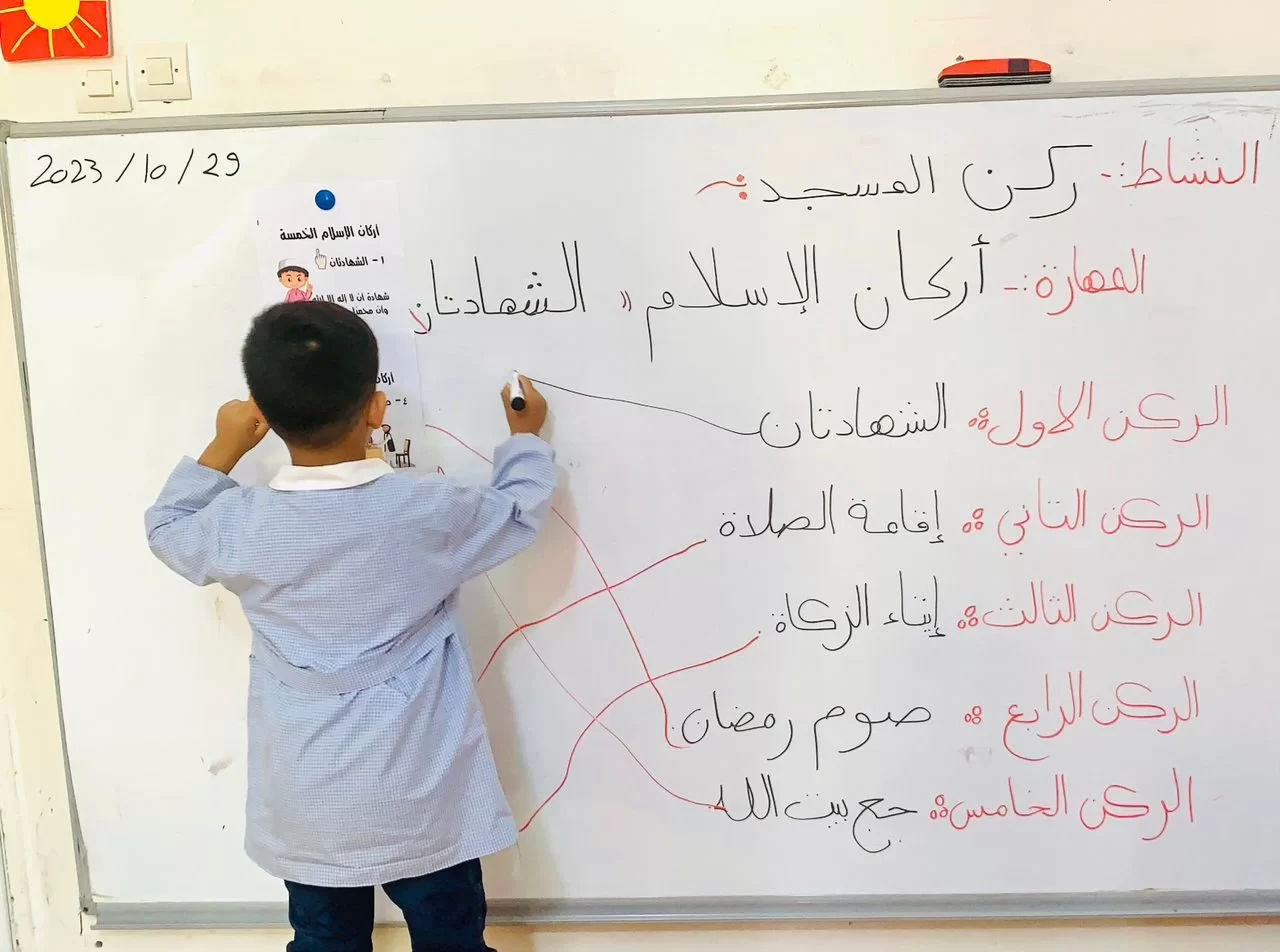 2023/10/29
النشاط:- ركن المسجد:
المهارة:- أركان الإسلام "الشهادتان"
الركن الاول: الشهادتان
الركن الثاني: إقامة الصلاة
الركن الثالث: إيتاء الزكاة
الركن الرابع: صوم رمضان
الركن الخامس: حج بيت الله
اركان الإسلام الخمسة
١- الشهادتان
شهادة ان لا إله إلا الله
وان
٤-